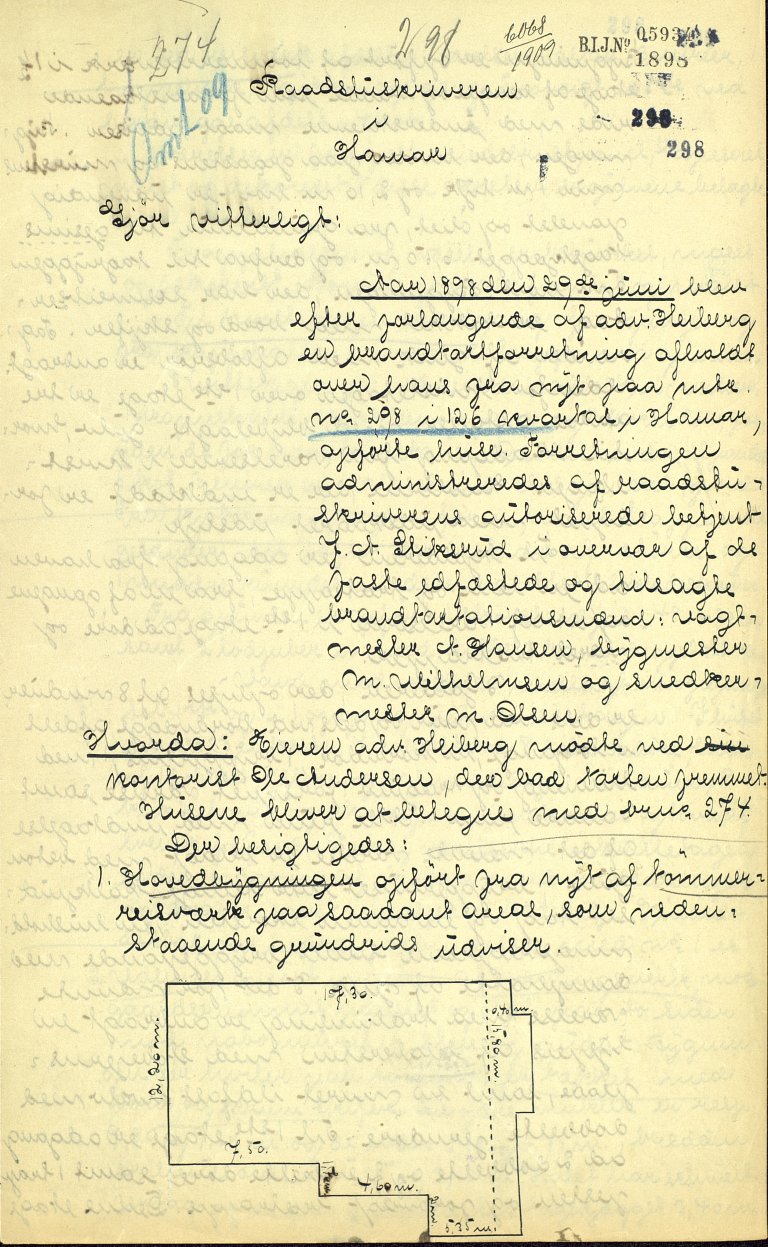 274
298
6068
1909
B.I.J.No 05934
1898
298
298
Amt 09
Raadstuskriveren
i
Hamar
Gjör vitterligt:
Aar 1898 den 29de juni blev
efter forlangende af adv. Heiberg
en brandtaxtforretning afholdt
over hans fra nyt paa mtr.
no. 298 i 126 kvartal i Hamar,
opförte huse. Forretningen
administreredes af raadstu-
skriverens autoriserede betjent
J. A. Stikerud i overvær af de
faste edfæstede og tilsagte
brandtaxtationsmænd: vagt-
mester A. Hansen, bygmester
M. Wilhelmsen og snedker-
mester M. Olsen.
Hvorda: Eieren adv. Heiberg mödte ved sin
kontorist Ole Andersen, der bad taxten fremmet.
Husene bliver at betegne med brno. 274.
Der besigtigedes:
1. Hovedbygningen opfört fra nyt af tömmer-
reisværk paa saadant areal, som neden-
staaende grundrids udviser.
17,30.
0,40 m
12,20 m.
15,80 m.
7,50.
4,60 m.
2 m
5,35 m.